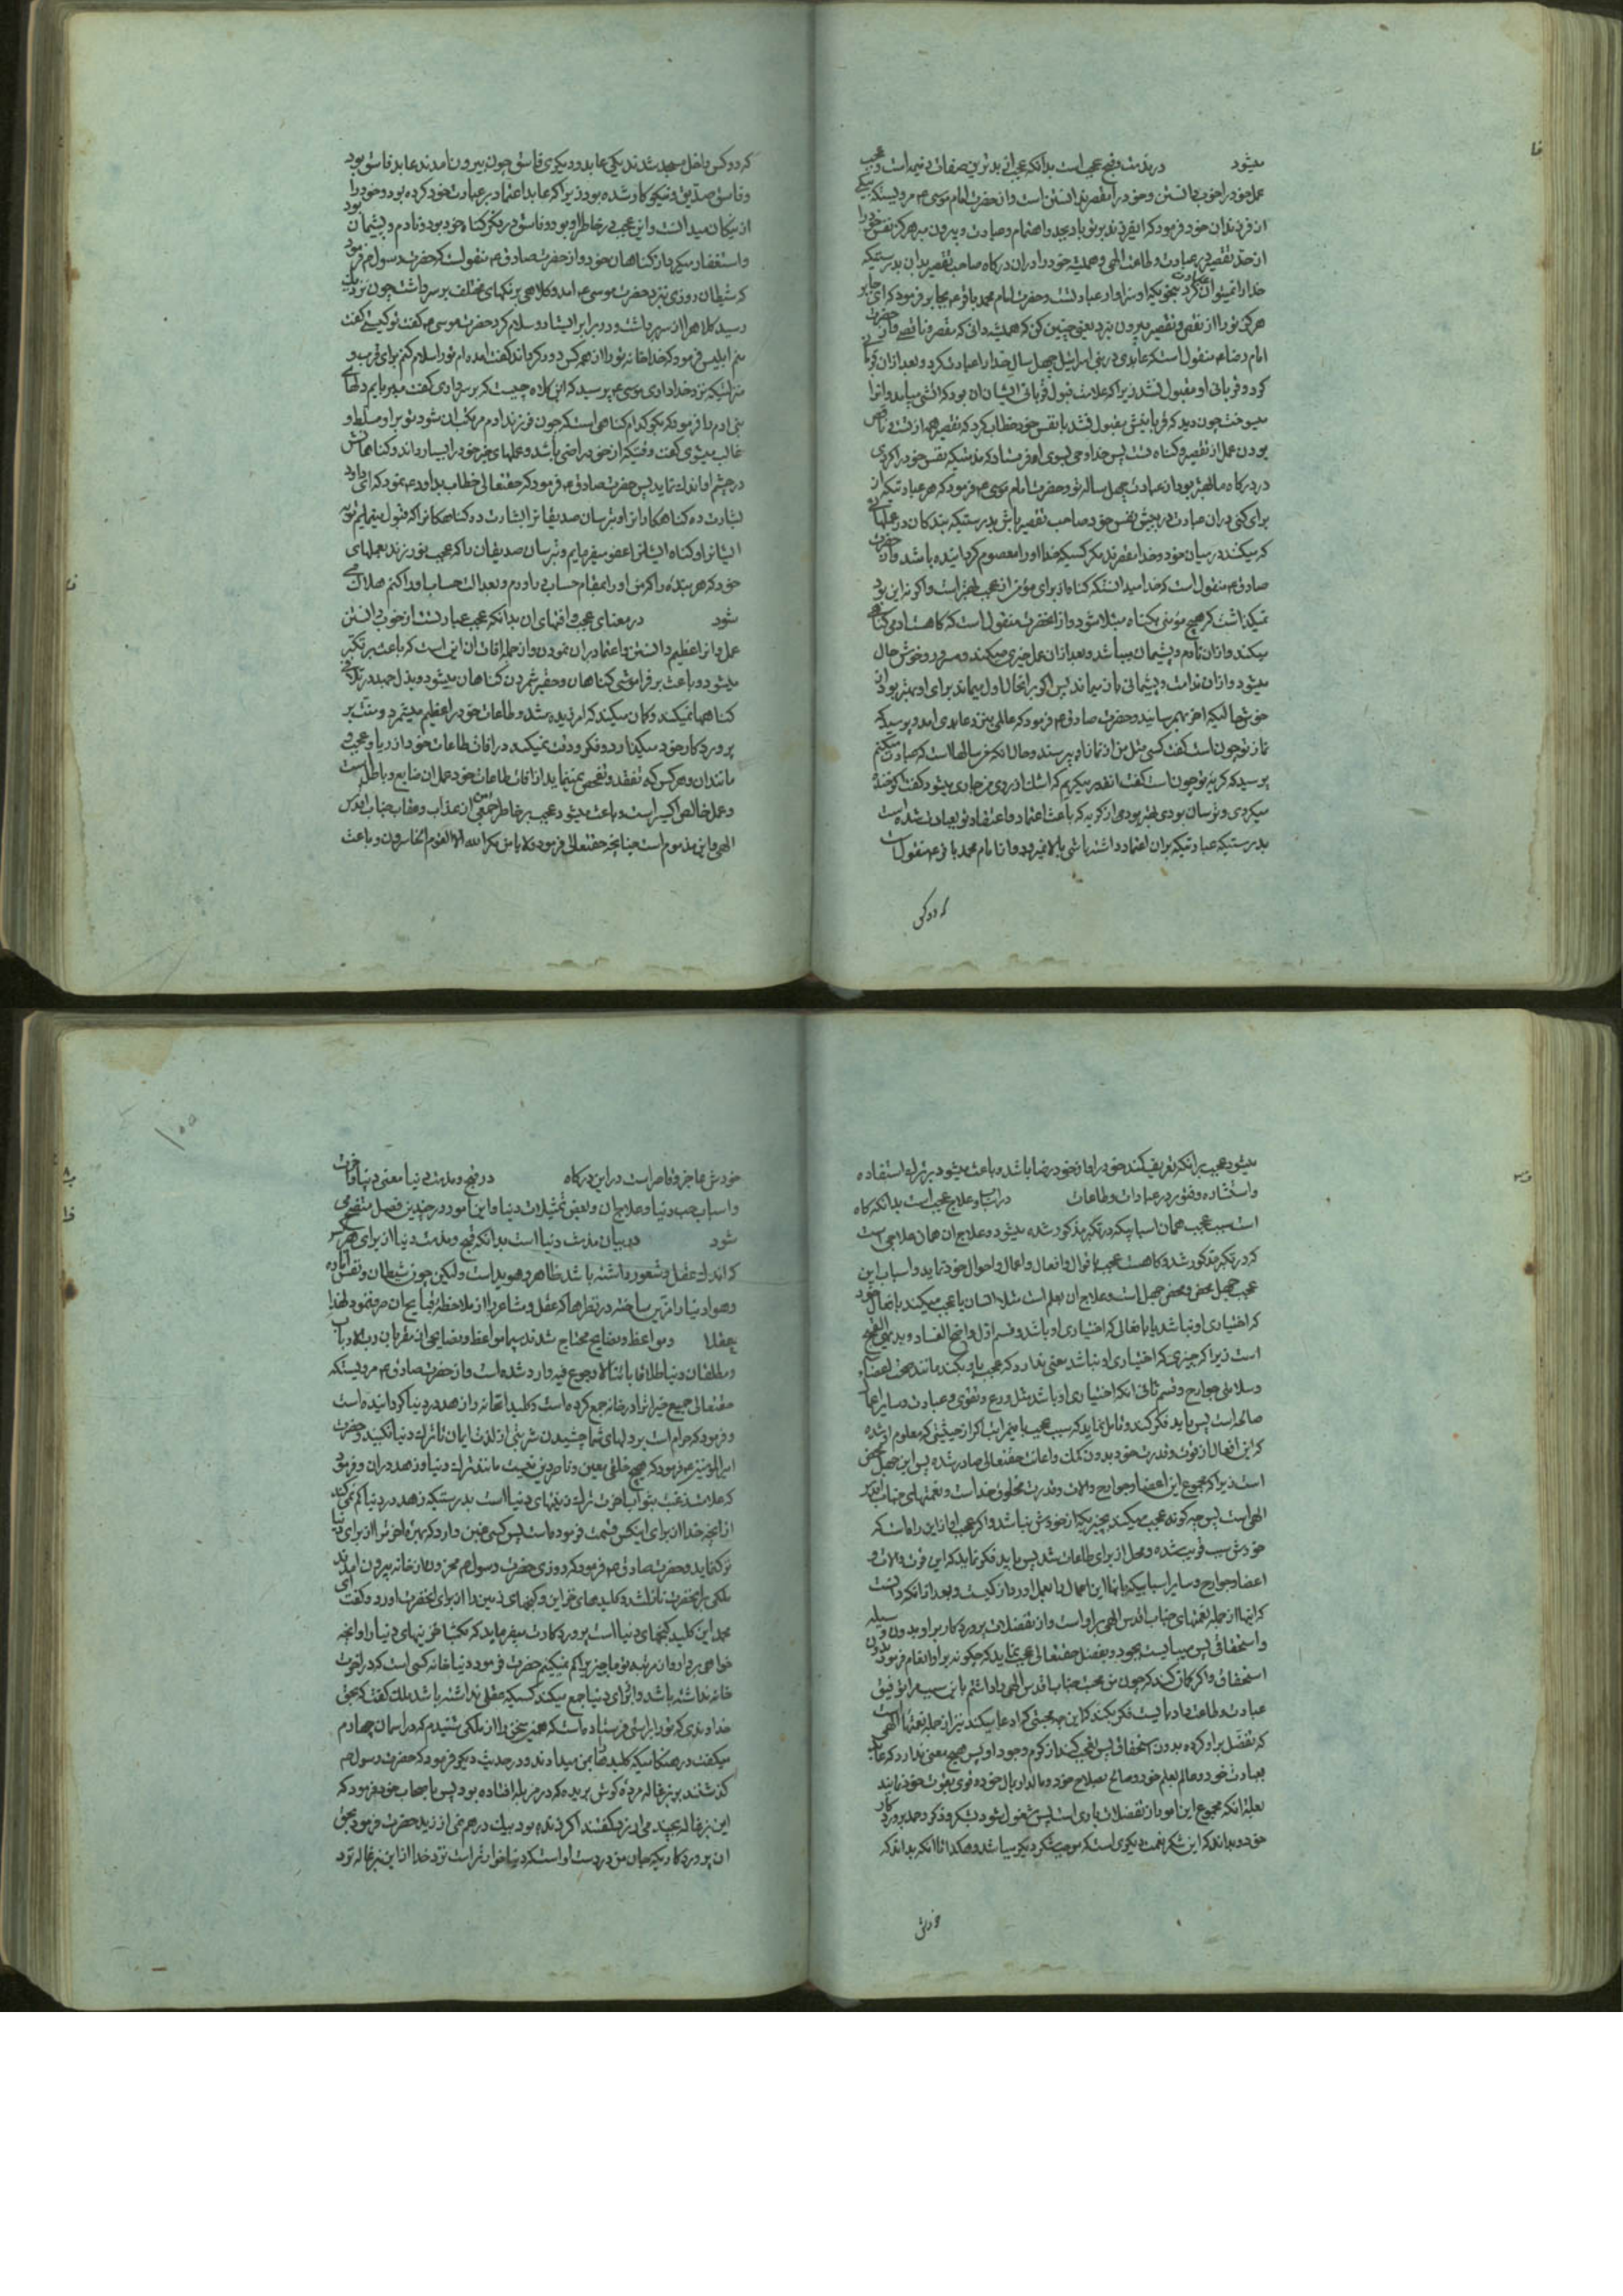 میشود در مذمت و قبح عجب است بدانکه عجب از بدترین صفات ذمیمه است و عجب
عمل خود را خوب دانستن و خود را مقصر ندانستن است و از حضرت امام موسی ع مرویست که بیکی
از فرزندان خود فرمود که ای فرزند بر تو باد بجد و اهتمام و عبادت و بیرون مبر هرگز نفس خود را
از حد تقصیر در عبادت و طاعت الهی و همیشه خود را در ان درگاه صاحب تقصیر بدان بدرستیکه
خدا را نمیتوان عبادت کرد بنحویکه او سزاوار عبادتست و حضرت امام محمد باقر ع بجابر فرمود که ای جابر
هرگز تو را از نقص و تقصیر بیرون نبرد یعنی چنین کن که همیشه دانی که مقصر و ناقصی و از حضرت
امام رضا ع منقول است که عابدی در بنی اسرائیل چهل سال خدا را عبادت کرد و بعد از ان قربانی
کرد و قربانی او مقبول نشد زیرا که علامت قبول قربانی ایشان ان بود که اتشی میامد و انرا
میسوخت چون دید که قربانیش مقبول نشد با نفس خود خطاب کرد که تقصیر همه از تست و ناقص
بودن عمل از تقصیر و گناه تست پس خدا وحی بسوی او فرستاد که مذمتیکه نفس خود را کردی
در درگاه ما بهتر بود از عبادت چهل ساله تو و حضرت امام موسی ع فرمود که هر عبادتیکه از
برای کنی در ان عبادت در پیش نفس خود صاحب تقصیر باش بدرستیکه بندگان در عملهائی
که میکنند در میان خود و خدا مقصرند مگر کسیکه خدا او را معصوم گردانیده باشد و از حضرت
صادق ع منقول است که خدا میدانست که گناه از برای مؤمن از عجب بهتر است و اگر نه این بود
نمیگذاشت که هیچ مؤمنی بگناه مبتلا شود و از انحضرت منقول است که گاهست ادمی گناهی
میکند و از ان نادم و پشیمان میباشد و بعد از ان عمل خیری میکند و مسرور و خوش حال
میشود و از ان ندامت و پشیمانی باز میماند پس اگر بر انحال اول میماند برای او بهتر بود از
خوش حالیکه اخر بهم رسانید و حضرت صادق ع فرمود که عالمی بنزد عابدی امد و پرسید که
نماز تو چون است گفت کسی مثل من از نماز او میپرسند و حال انکه من سالها است که عبادت میکنم
پرسید که گریه تو چون است گفت انقدر میگریم که اشک از روی من جاری میشود گفت اگر خنده
میکردی و ترسان بودی بهتر بود از گریه که باعث اعتماد و اعتقاد تو بعبادت شده است
بدرستیکه عبادتیکه بران اعتماد داشته باشی بالا نمیرود و از امام محمد باقر ع منقول است
که دو کس
که دو کس داخل مسجد شدند یکی عابد و دیگری فاسق چون بیرون امدند عابد فاسق بود
و فاسق صدیق و نیکوکار شده بود زیرا که عابد اعتماد بر عبادت خود کرده بود و خود را
از نیکان میدانست و این عجب در خاطر او بود و فاسق در فکر گناه خود بود و نادم و پشیمان بود
و استغفار میکرد از گناهان خود و از حضرت صادق ع منقولست که حضرت رسول ص فرمود
که شیطان روزی بنزد حضرت موسی ع امد و کلاهی برنگهای مختلف بر سر داشت چون نزدیک
رسید کلاه را از سر برداشت و در برابر ایستاد و سلام کرد حضرت موسی ع گفت تو کیستی گفت
منم ابلیس فرمود که خدا خانه تو را از همه کس دور گرداند گفت امده ام تو را سلام کنم برای قرب و
منزلتیکه نزد خدا داری موسی ع پرسید که این کلاه چیست که بر سر داری گفت میربایم دلهای
بنی ادم را فرمود که بگو کدام گناهی است که چون فرزند ادم مرتکب ان شود تو بر او مسلط و
غالب میشوی گفت وقتیکه از خود راضی باشد و عملهای خیر خود را بسیار داند و گناهانش
در چشم او اندک نماید پس حضرت صادق ع فرمود که حقتعالی خطاب بداود ع نمود که ای داود
بشارت ده گناهکاران را و بترسان صدیقان را بشارت ده گناهکاران را که قبول مینمایم توبه
ایشان را و گناه ایشان را عفو میفرمایم و بترسان صدیقان را که عجب نورزند بعملهای
خود که هر بنده را که من او را بمقام حساب درآورم و بعدالت حساب او را کنم هلاک می
شود در معنای عجب و افتهای ان بدانکه عجب عبارتست از خوب دانستن
عمل و انرا عظیم دانستن و اعتماد بران نمودن و از جمله افات ان این است که باعث بر تکبر
میشود و باعث بر فراموشی گناهان و حقیر شمردن گناهان میشود و بذل جهد در تلافی
گناهها نمیکند و گمان میکند که امرزیده شد و طاعات خود را عظیم میشمرد و منت بر
پروردگار خود میگذارد و فکر و دقت نمیکند در افات طاعات خود از ریا و عجب و
مانند ان و هر کس که تفقد و تفحص ننماید از افات طاعات خود عمل ان ضایع و باطل است
و عمل خالص اکسیر است و باعث میشود عجب بر خاطر جمعی از عذاب و عقاب جناب اقدس
الهی و این مذموم است چنانچه حقتعالی فرمود و لا یامن مکر الله الا القوم الخاسرون و باعث
میشود عجب بر انکه تعریف کند خود را و از خود رضا باشد و باعث میشود بر ترک استفاده
و استشاره و فتور در عبادات و طاعات در اسباب و علاج عجب است بدانکه گاه
است سبب عجب همان اسبابیکه در تکبر مذکور شده میشود و علاج ان همان علاجی است
که در تکبر مذکور شد و گاهست عجب باقوال و افعال و اعمال و احوال خود نماید و اسباب این
عجب جهل محض و محض جهل است و علاج ان بعلم است مثلا انسان یا عجب میکند بافعال خود
که اختیاری او نباشد یا بافعالی که اختیاری او باشد و قسم اول واضح الفساد و بدیهی القبح
است زیرا که چیزی که اختیاری او نباشد معنی ندارد که عجب باو بکند مانند صحت اعضاء
و سلامتی جوارح و قسم ثانی انکه اختیاری او باشد مثل ورع و تقوی و عبادت و سایر اعمال
صالحه است پس باید فکر کند و تامل نماید که سبب عجب باینمراتب اگر از حیثیتی که معلوم او شده
که این افعال از قوت و قدرت خود بدون کمک و اعانت حقتعالی صادر شده پس این جهل محض
است زیرا که مجموع این اعضا و جوارح و الات و قدرت مخلوق خداست و نعمتهای جناب اقدس
الهی است پس چه گونه عجب میکند بچیزیکه از خودش نباشد و اگر عجب او از این راه است که
خودش سبب قریب شده و محل از برای طاعات شد پس باید فکر نماید که این قوت و الات و
اعضا و جوارح و سایر اسبابیکه بانها این اعمال را بعمل اورد از کیست و بعد از انکه دانست
که اینها از جمله نعمتهای جناب اقدس الهی بر او است و از تفضلات پروردگار بر او بدون وسیله
و استحقاقی پس میبایست بجود و بفضل حقتعالی عجب نماید که چگونه بر او انعام فرمود بدون
استحقاق و اگر گمان کند که چون من محبت جناب اقدس الهی را داشتم باین سبب مرا توفیق
عبادت و طاعت داد بایست فکر بکند که این چه محبتی که ادعا میکند نیز از جمله نعمتها الهی است
که تفضل بر او کرده بدون استحقاق پس تعجب کند از کرم وجود او پس هیچ معنی ندارد که عابد
بعبادت خود و عالم بعلم خود و صالح بصلاح خود و مالدار بمال خود و قوی بقوت خود نمایند
بعلة انکه مجموع این امور از تفضلات باری است پس مشغول شود بشکر و ذکر و حمد پروردگار
خود و بداند که این شکر نعمت دیگری است که موجب شکر دیگر میباشد و هکذا تا انکه بداند که
خودش
خودش عاجز و قاصر است در این درگاه در قبح و مذمت دنیا معنی دنیا و اخرت
و اسباب حب دنیا و علاج ان و بعضی تمثیلات دنیا و این امور در چندین فصل متضح می
شود در بیان مذمت دنیا است بدانکه قبح و مذمت دنیا از برای هر کس
که اندک عقل و شعور داشته باشد ظاهر و هویداست ولیکن چون شیطان و نفس اماره
و هوا دنیا را مزین ساخته در نظرها که عقل و مشاعر را از ملاحظه قبایح ان صرف نمود لهذا
عقلا و مواعظ و نصایح محتاج شدند
و مطلقان دنیا طلاقا بائنا لا رجوع فیه وارد شده است و از حضرت صادق ع مرویست که
حقتعالی جمیع خیرات را در خانه جمع کرده است و کلید انخانه را زهد در دنیا گردانیده است
و فرمود که حرام است بر دلهای شما چشیدن شیرینی از لذت ایمان تا ترک دنیا نکنید و حضرت
امیرالمؤمنین ع فرمود که هیچ خلقی معین و ناصر دین نیست مانند ترک دنیا و زهد در ان و فرمود
که علامت رغبت بثواب اخرت ترک زینتهای دنیا است بدرستیکه زهد در دنیا کم نمیکند
از انچه خدا از برای اینکس قسمت فرموده است پس کسی غبن دارد که بهره اخرت را از برای دنیا
ترک نماید و حضرت صادق ع فرمود که روزی حضرت رسول ص محزون از خانه بیرون امدند
ملکی بر انحضرت نازل شد و کلیدهای خزاین و گنجهای زمین را از برای انحضرت اورد و گفت ای
محمد این کلید گنجهای دنیا است پروردگارت میفرماید که بگشا خزینهای دنیا را و انچه
خواهی بردار و از مرتبه تو ما چیزی را کم نمیکنیم حضرت فرمود دنیا خانه کسی است که در اخرت
خانه نداشته باشد و از برای دنیا جمع میکند کسیکه عقلی نداشته باشد ملک گفت که بحق
خداوندی که تو را براستی فرستاده است که همین سخن را از ملکی شنیدم که در اسمان چهارم
میگفت در هنگامیکه کلیدها بمن میدادند و در حدیث دیگر فرمود که حضرت رسول ص
گذشتند بر بزغاله مرده گوش بریده که در مزبله افتاده بود پس با صحاب خود فرمود که
این بزغاله بچند می ارزد گفتند اگر زنده بود بیک درهم نمی ارزید حضرت فرمود بحق
ان پروردگاریکه جان من در دست او است که دنیا خوار تر است نزد خدا از این بزغاله نزد